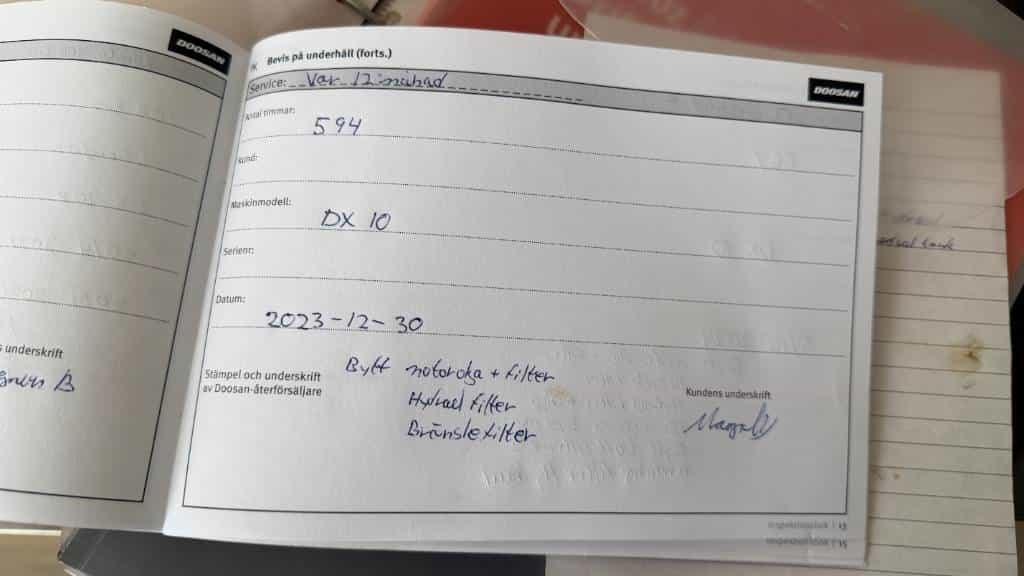 DOOSAN
Bevis på underhåll (forts.)
DOOSAN
Service: Var 12:månad
Antal timmar:
594
Kund:
Maskinmodell:
DX 10
Serienr:
Datum:
2023-12-30
s underskrift
Stämpel och underskrift
av Doosan-återförsäljare
Bytt motorolja + filter
Hydraul filter
Bränslefilter
Kundens underskrift